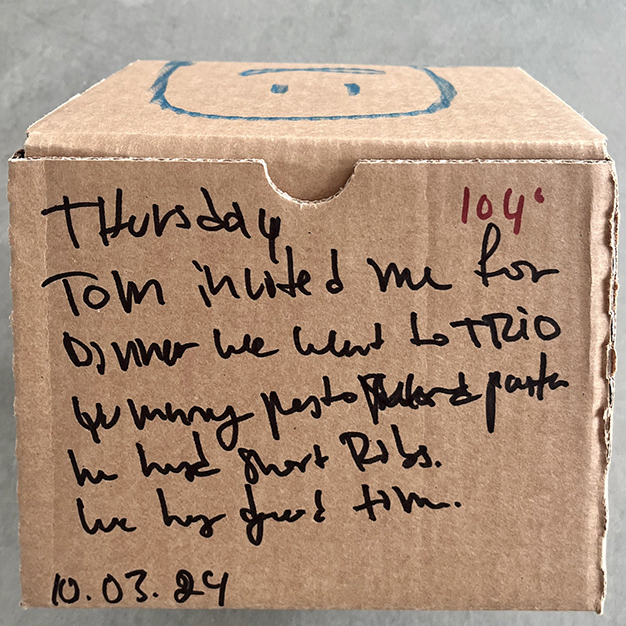 THursday
104°
Tom invited me for
Dinner we went to TRiO
pesto pasta
he had short Ribs.
we had good time.
10.03.24